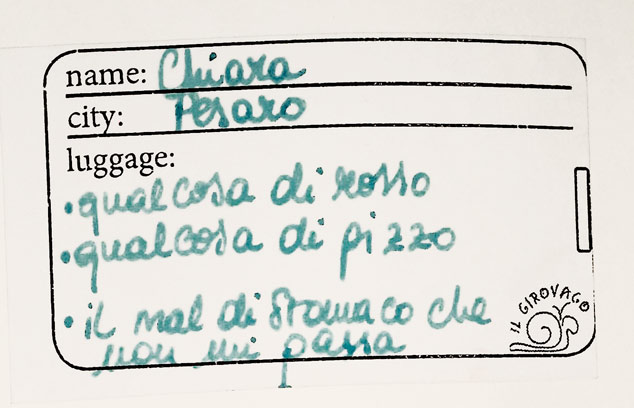 name: Chiara
city: Pesaro
luggage:
• qualcosa di rosso
• qualcosa di pizzo
• il mal di stomaco che
non mi passa
IL GIROVAGO